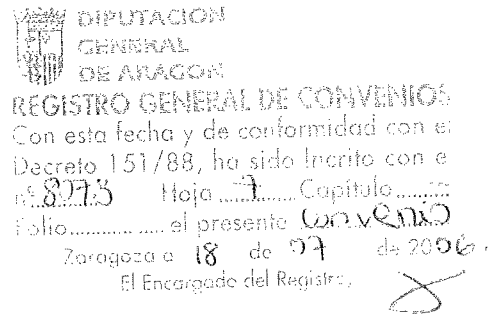 DIPUTACION
GENERAL
DE ARAGON
REGISTRO GENERAL DE CONVENIOS
Con esta fecha y de conformidad con el
Decreto 151/88, ha sido Incrito con e
nº 8273 Hoja 7 Capítulo
Folio el presente convenio
Zaragoza a 18 de 07 de 2006.
El Encargado del Registro,